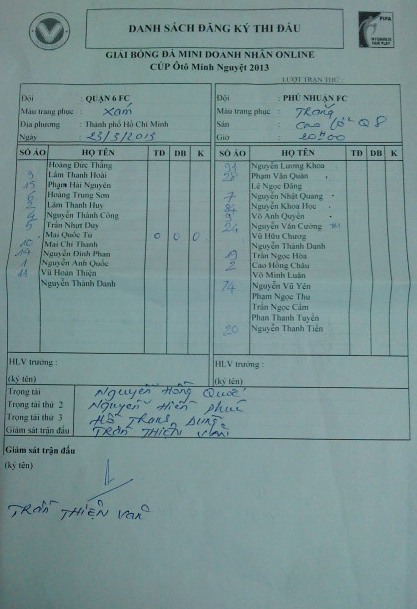 DANH SÁCH ĐĂNG KÝ THI ĐẤU
FIFA
FAIR PLAY
GIẢI BÓNG ĐÁ MINI DOANH NHÂN ONLINE
CÚP Ôtô Minh Nguyệt 2013
LƯỢT TRẬN THỨ :
Đội : QUẬN 6 FC
Màu trang phục : Xám
Địa phương : Thành phố Hồ Chí Minh
Ngày : 23/3/2013
Đội : PHÚ NHUẬN FC
Màu trang phục : Trắng
Sân : Cao Lỗ Q8
Giờ : 20h00
SỐ ÁO HỌ TÊN TĐ DB K
Hoàng Đức Thắng
9 Lâm Thanh Hoài
15 Phạm Hải Nguyên
Hoàng Trung Sơn
8 Lâm Thanh Huy
Nguyễn Thành Công
5 Trần Nhựt Duy
Mai Quốc Tú 0 0 0
10 Mai Chí Thanh
14 Nguyễn Đình Phan
1 Nguyễn Anh Quốc
11 Vũ Hoàn Thiện
Nguyễn Thành Danh
SỐ ÁO HỌ TÊN TĐ DB K
Nguyễn Lương Khoa
28 Phạm Văn Quản
Lê Ngọc Đăng
7 Nguyễn Nhật Quang
Nguyễn Khoa Học
9 Võ Anh Quyền
24 Nguyễn Văn Cường
Vũ Hữu Chương
Nguyễn Thành Danh
19 Trần Ngọc Hòa
2 Cao Hồng Châu
Võ Minh Luân
74 Nguyễn Vũ Yên
Phạm Ngọc Thu
Trần Ngọc Cẩm
Phan Thanh Tuyển
20 Nguyễn Thanh Tiên
HLV trưởng :
(ký tên)
HLV trưởng :
(ký tên)
Trọng tài Nguyễn Hồng Quốc
Trọng tài thứ 2 Nguyễn Hiền Phúc
Trọng tài thứ 3 Hồ Trang Dũng
Giám sát trận đấu Trần Thiện Văn
Giám sát trận đấu
(ký tên)
Trần Thiện Văn